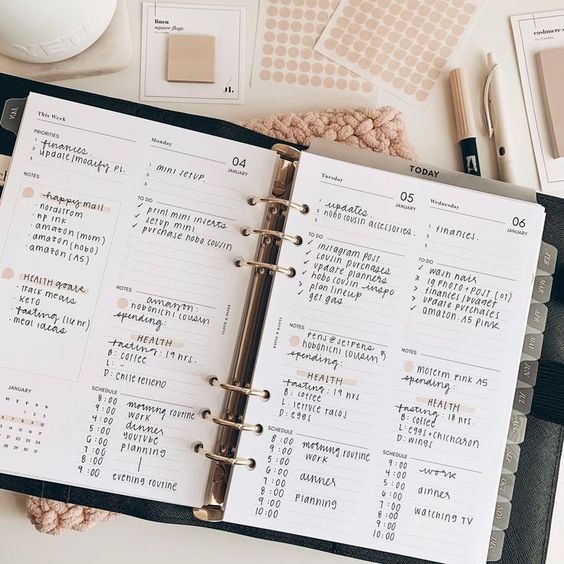 linen
square flags
cashmere
YETI
JAN
This Week
PRIORITIES
1 finances
2 update/modify PL
3
NOTES
happy mail
- nordstrom
- np ink
- amazon (mom)
- amazon (hobo)
- amazon (A5)
HEALTH GOALS
- track meals
- KETO
- fasting (16hr)
- meal ideas
JANUARY
Monday
04
JANUARY
1 mini setup
2
3
TO DO
✓ print mini inserts
✓ setup mini
✓ purchase hobo cousin
NOTES
amazon:
hobonichi cousin
spending:
HEALTH
- fasting: 19 hrs.
B: coffee
L: -
D: chile relleno
SCHEDULE
5:00 morning routine
6:00 work
7:00 dinner
8:00 youtube
9:00 planning
9:00 evening routine
TODAY
Tuesday
05
JANUARY
1 updates
2 hobo cousin accessories
3
TO DO
✓ instagram post
✓ cousin purchases
✓ update planners
✓ hobo cousin inspo
✓ plan lineup
✓ get gas
NOTES
pens @ jetpens
hobonichi cousin
spending:
HEALTH
- fasting: 19 hrs.
B: coffee
L: lettuce tacos
D: eggs
SCHEDULE
5:00 morning routine
6:00 work
7:00
8:00 dinner
9:00 planning
10:00
Wednesday
06
JANUARY
1 finances
2
3
TO DO
✓ wash hair
✓ ig photo + post (01)
✓ finances/budget
✓ update purchases
✓ amazon: A5 pink
NOTES
moterm pink A5
spending:
HEALTH
- fasting: 18 hrs.
B: coffee
L: eggs + chicharron
D: wings
SCHEDULE
5:00 work
6:00
7:00 dinner
8:00
9:00 watching TV
10:00
FEB
MAR
APR
MAY
JUN
JUL